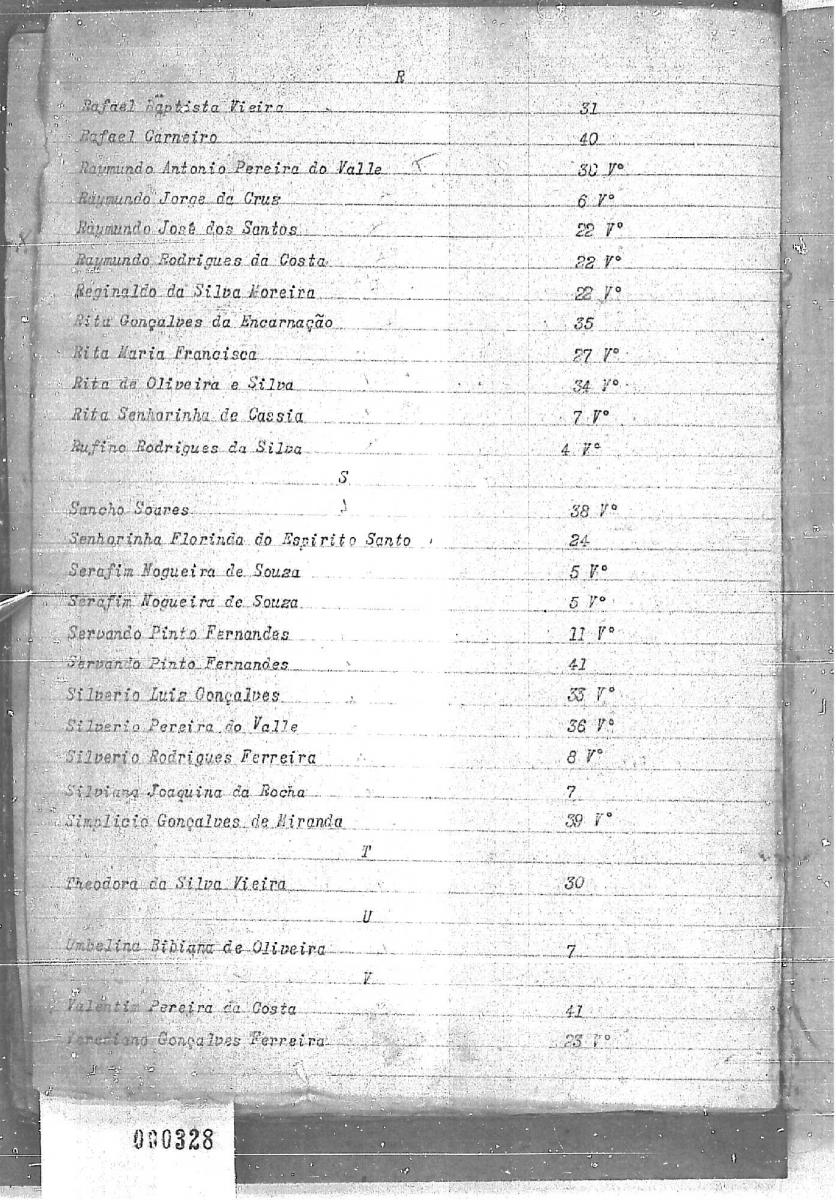 R
Rafael Baptista Vieira 31
Rafael Carneiro 40
Raymundo Antonio Pereira do Valle 30 Vº
Raymundo Jorge da Cruz 6 Vº
Raymundo José dos Santos 22 Vº
Raymundo Rodrigues da Costa 22 Vº
Reginaldo da Silva Moreira 22 Vº
Rita Gonçalves da Encarnação 35
Rita Maria Francisca 27 Vº
Rita de Oliveira e Silva 34 Vº
Rita Senhorinha de Cassia 7 Vº
Rufino Rodrigues da Silva 4 Vº
S
Sancho Soares 38 Vº
Senhorinha Florinda do Espirito Santo 24
Serafim Nogueira de Souza 5 Vº
Serafim Nogueira de Souza 5 Vº
Servando Pinto Fernandes 11 Vº
Servando Pinto Fernandes 41
Silverio Luiz Gonçalves 33 Vº
Silverio Pereira do Valle 36 Vº
Silverio Rodrigues Ferreira 8 Vº
Silviana Joaquina da Rocha 7
Simplicio Gonçalves de Miranda 39 Vº
T
Theodora da Silva Vieira 30
U
Umbelina Bibiana de Oliveira 7
V
Valentim Pereira da Costa 41
Gonçalves Ferreira 23 Vº
000328